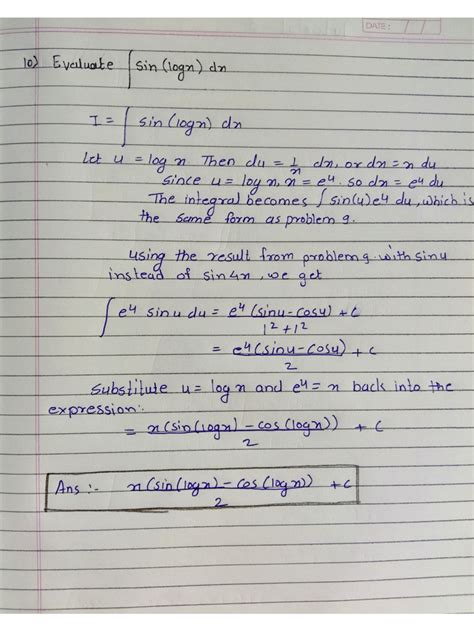 DATE: / /
10) Evaluate ∫ sin (logx) dx
I = ∫ sin (logx) dx
Let u = log x Then du = 1/x dx, or dx = x du
since u = log x, x = e^u. so dx = e^u du
The integral becomes ∫ sin(u) e^u du, which is
the same form as problem 9.
using the result from problem 9 with sinu
instead of sin4x, we get
∫ e^u sinu du = e^u (sinu-cosu) / 1²+1² + c
= e^u (sinu-cosu) / 2 + c
Substitute u = logx and e^u = x back into the
expression:-
= x (sin(logx) - cos (logx)) / 2 + c
Ans :- x (sin(logx) - cos (logx)) / 2 + c